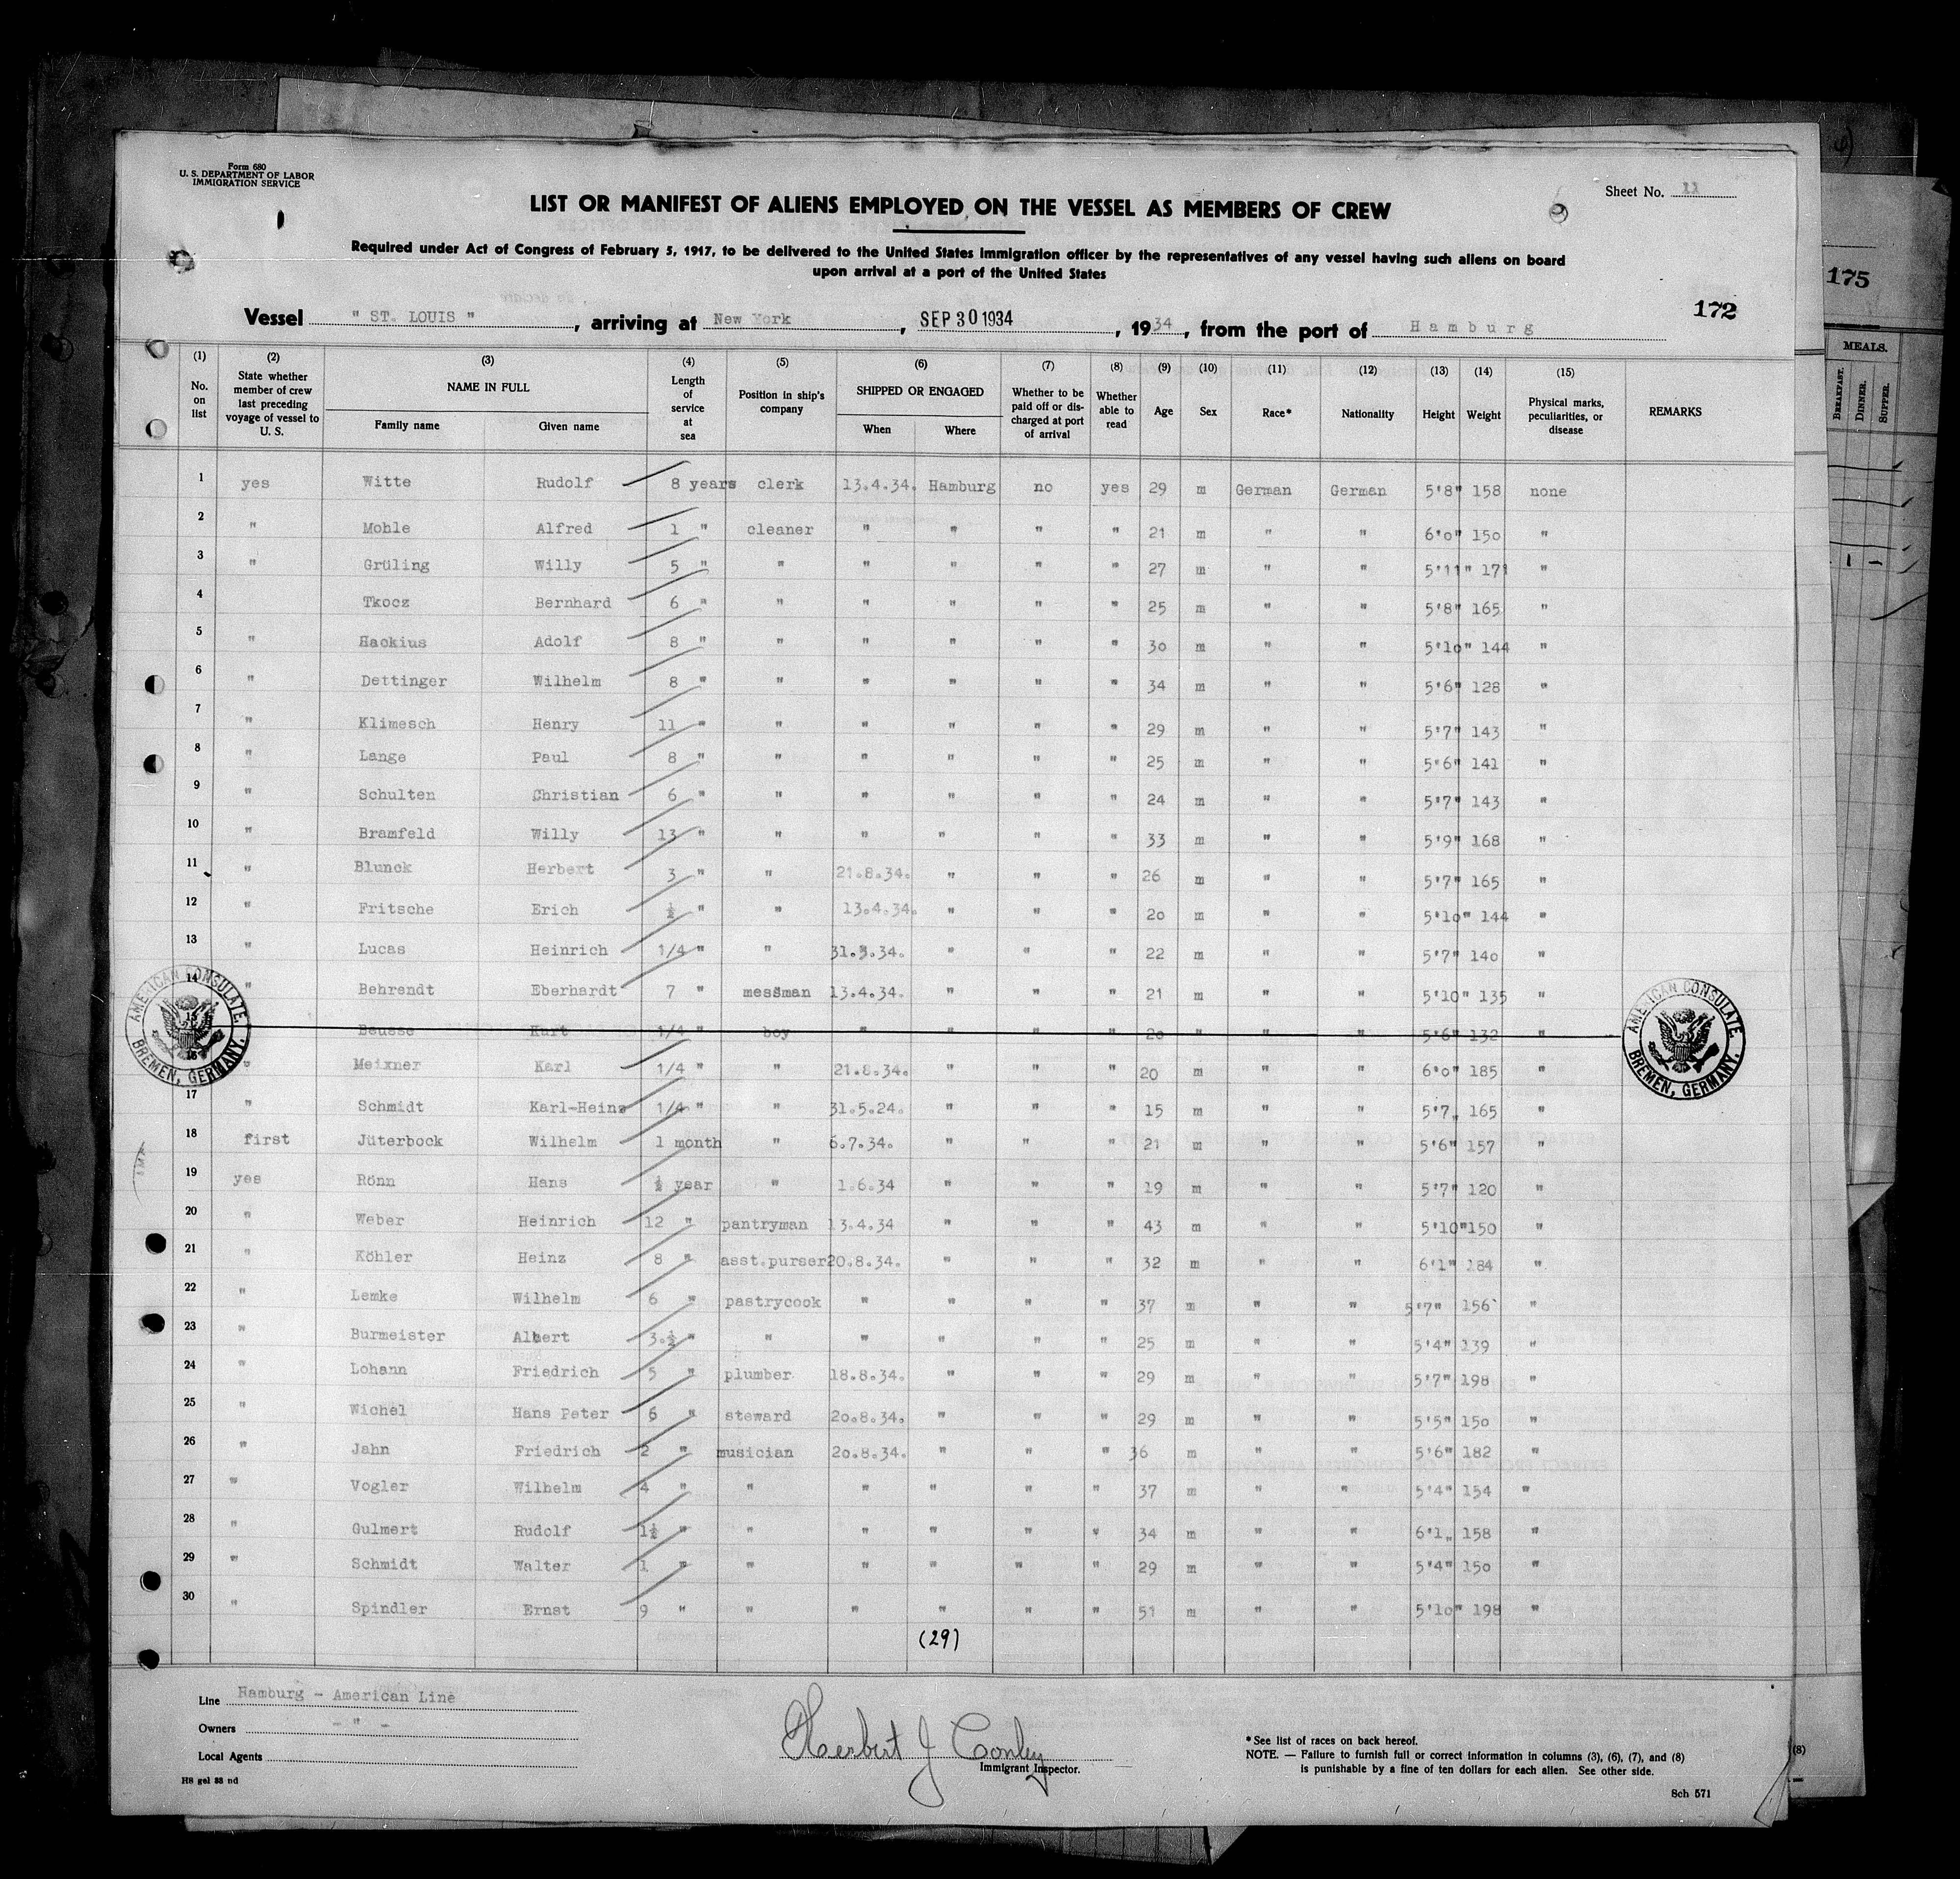 Form 680
U. S. DEPARTMENT OF LABOR
IMMIGRATION SERVICE
Sheet No. 11
LIST OR MANIFEST OF ALIENS EMPLOYED ON THE VESSEL AS MEMBERS OF CREW
Required under Act of Congress of February 5, 1917, to be delivered to the United States immigration officer by the representatives of any vessel having such aliens on board
upon arrival at a port of the United States
172
Vessel " ST. LOUIS " , arriving at New York , SEP 30 1934 , 1934 , from the port of Hamburg
(1) No. on list (2) State whether member of crew last preceding voyage of vessel to U. S. (3) NAME IN FULL Family name Given name (4) Length of service at sea (5) Position in ship's company (6) SHIPPED OR ENGAGED When Where (7) Whether to be paid off or discharged at port of arrival (8) Whether able to read (9) Age (10) Sex (11) Race* (12) Nationality (13) Height (14) Weight (15) Physical marks, peculiarities, or disease REMARKS
1 yes Witte Rudolf 8 years clerk 13.4.34. Hamburg no yes 29 m German German 5'8" 158 none
2 " Mohle Alfred 1 " cleaner " " " " 21 m " " 6'0" 150 "
3 " Grüling Willy 5 " " " " " " 27 m " " 5'11" 171 "
4 Tkocz Bernhard 6 " " " " " " 25 m " " 5'8" 165 "
5 " Hackius Adolf 8 " " " " " " 30 m " " 5'10" 144 "
6 " Dettinger Wilhelm 8 " " " " " " 34 m " " 5'6" 128 "
7 " Klimesch Henry 11 " " " " " " 29 m " " 5'7" 143 "
8 " Lange Paul 8 " " " " " " 25 m " " 5'6" 141 "
9 " Schulten Christian 6 " " " " " " 24 m " " 5'7" 143 "
10 " Bramfeld Willy 13 " " " " " " 33 m " " 5'9" 168 "
11 " Blunck Herbert 3 " " 21.8.34. " " " 26 m " " 5'7" 165 "
12 " Fritsche Erich ½ " " 13.4.34. " " " 20 m " " 5'10" 144 "
13 " Lucas Heinrich 1/4 " " 31.3.34. " " " 22 m " " 5'7" 140 "
14 " Behrendt Eberhardt 7 " messman 13.4.34. " " " 21 m " " 5'10" 135 "
15 Beusse Kurt 1/4 " boy " " " " 20 " " " 5'6" 132 "
16 " Meixner Karl 1/4 " " 21.8.34. " " " 20 m " " 6'0" 185 "
17 " Schmidt Karl-Heinz 1/4 " " 31.5.24. " " " 15 m " " 5'7" 165 "
18 first Jüterbock Wilhelm 1 month " 6.7.34. " " " 21 m " " 5'6" 157 "
19 yes Rönn Hans ½ year " 1.6.34 " " " 19 m " " 5'7" 120 "
20 " Weber Heinrich 12 " pantryman 13.4.34 " " " 43 m " " 5'10" 150 "
21 " Köhler Heinz 8 " asst.purser 20.8.34. " " " 32 m " " 6'1" 184 "
22 " Lemke Wilhelm 6 " pastrycook " " " " 37 m " " 5'7" 156 "
23 " Burmeister Albert 3.½ " " " " " " 25 m " " 5'4" 139 "
24 " Lohann Friedrich 5 " plumber 18.8.34. " " " 29 m " " 5'7" 198 "
25 " Wichel Hans Peter 6 " steward 20.8.34. " " " 29 m " " 5'5" 150 "
26 " Jahn Friedrich 2 " musician 20.8.34. " " " 36 m " " 5'6" 182 "
27 " Vogler Wilhelm 4 " " " " " " 37 m " " 5'4" 154 "
28 " Gulmert Rudolf 1½ " " " " " " 34 m " " 6'1" 158 "
29 " Schmidt Walter 1 " " " " " " 29 m " " 5'4" 150 "
30 " Spindler Ernst 9 " " " " " " 51 m " " 5'10" 198 "
(29)
AMERICAN CONSULATE BREMEN, GERMANY.
AMERICAN CONSULATE. BREMEN, GERMANY.
Line Hamburg - American Line
Owners - " -
Local Agents
H8 gel 33 nd
Herbert J Conley
Immigrant Inspector.
* See list of races on back hereof.
NOTE. — Failure to furnish full or correct information in columns (3), (6), (7), and (8)
is punishable by a fine of ten dollars for each alien. See other side.
Sch 571
175
MEALS.
BREAKFAST. DINNER. SUPPER.
(8)